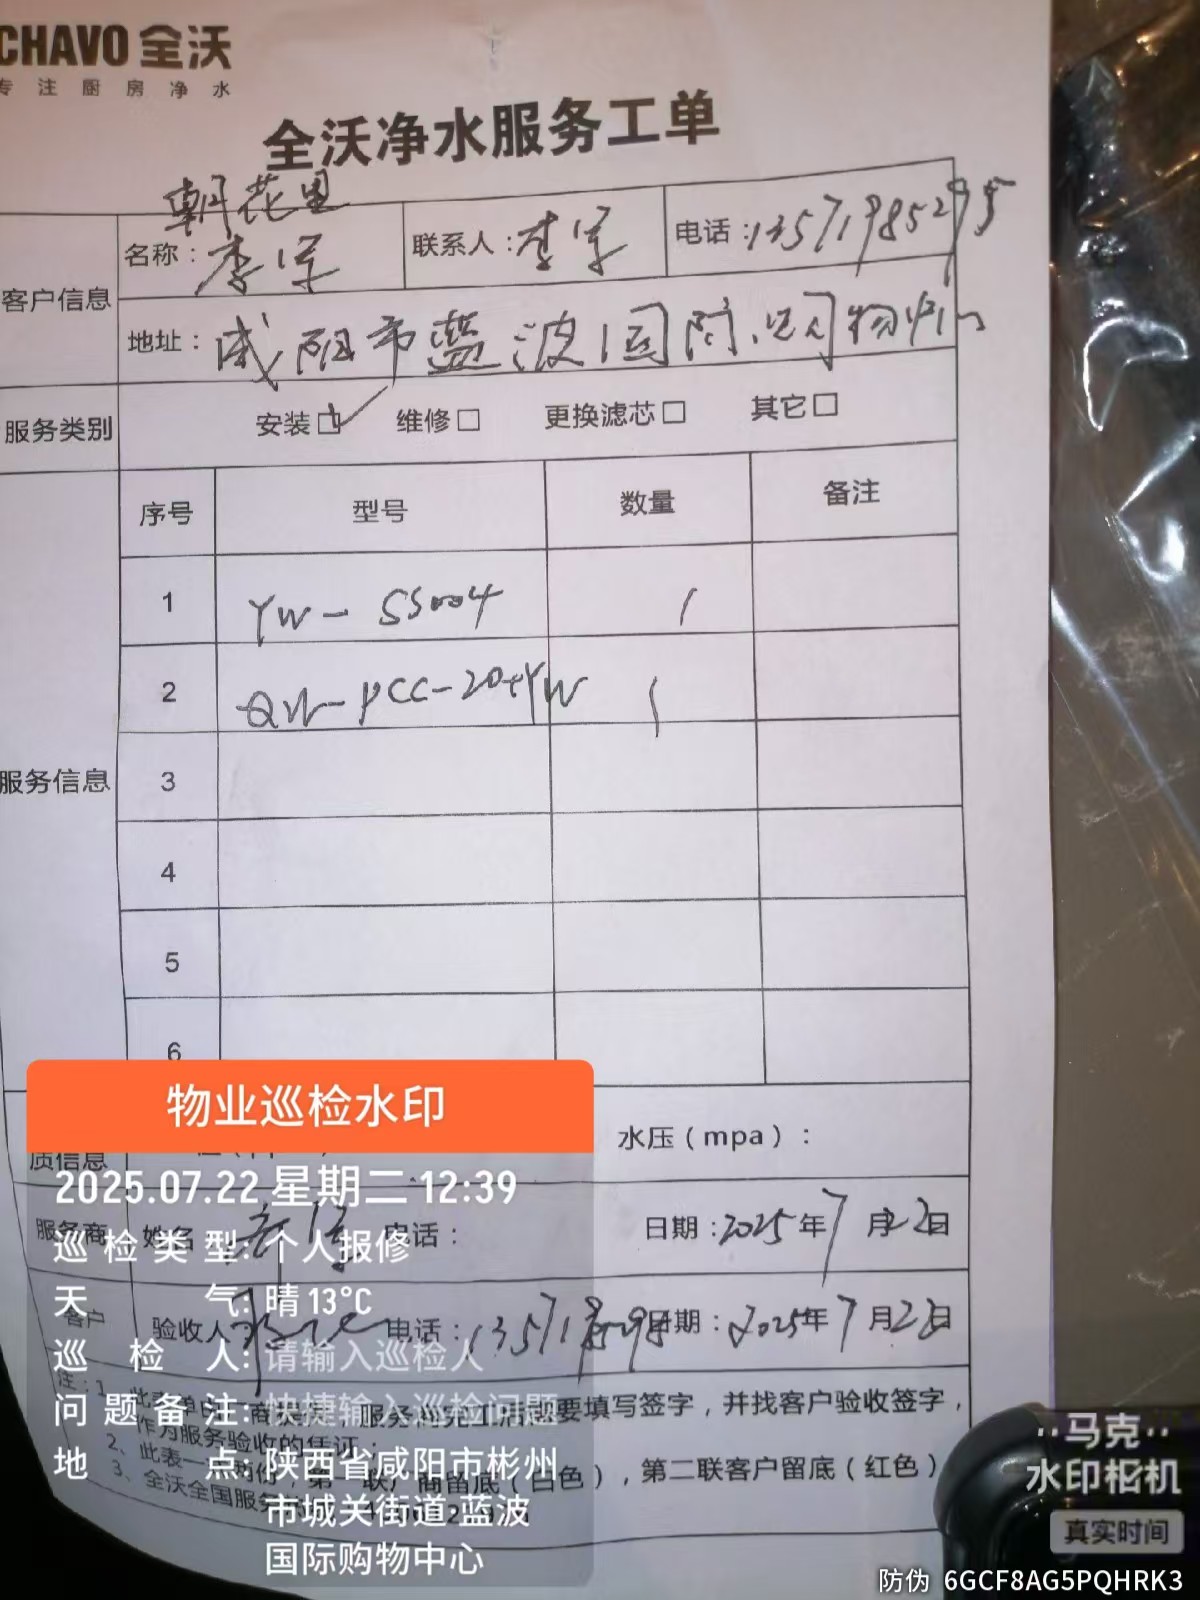 CHAVO 全沃
专注厨房净水
全沃净水服务工单
朝花里
客户信息 名称：李军 联系人：李军 电话：13571985295
地址：咸阳市蓝波国际
服务类别 安装☑ 维修□ 更换滤芯□ 其它□
服务信息 序号 型号 数量 备注
1 YW-SS004 1
2 QW-PCC-20+YW 1
3
4
5
6
质信息 水压（mpa）：
服务商 姓名 电话： 日期：2025年7月22日
客户 验收人 电话：13571985295 日期：2025年7月22日
服务 要填写签字，并找客户验收签字，
作为服务验收的凭证；
2、此表一 商留底（白色），第二联客户留底（红色）
3、全沃全国服务
物业巡检水印
2025.07.22 星期二 12:39
巡检类型：个人报修
天气：晴 13℃
巡检人：请输入巡检人
问题备注：快捷输入巡检问题
地点：陕西省咸阳市彬州
市城关街道·蓝波
国际购物中心
马克
水印相机
真实时间
防伪 6GCF8AG5PQHRK3